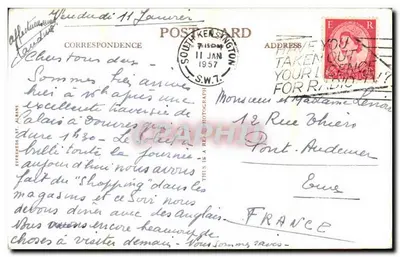 Vendredi 11 Janvier
affectueusement
CORRESPONDENCE
POST CARD
ADDRESS
SOUTH KENSINGTON
11 JAN
1957
S.W.7.
E R
HAVE YOU
TAKEN OUT
YOUR LICENCE
FOR RADIO & TV?
Chers tous deux -
Sommes bien arrivés
hier à après une
excellente traversée de
Calais à Douvres
dure 1h30 - Le soleil a
brillé toute la journée -
aujourd'hui nous avons
fait du "shopping" dans les
magasins et ce soir nous
devons dîner avec des Anglais.
Nous avons encore beaucoup de
choses à visiter demain - Nous sommes
Monsieur et Madame
12 Rue Thiers
Pont-Audemer
Eure
FRANCE